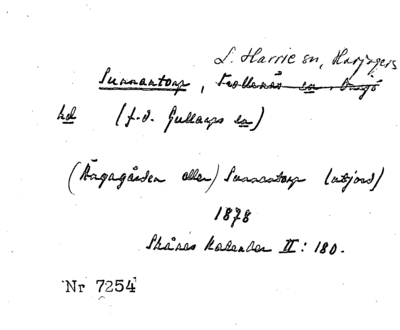 L. Harrie sn, Harjagers
Sunnantorp, Trollenäs sn, Onsjö
hd (f.d. Gullarps sn)
(Ängagården eller) Sunnantorp (utjord)
1878
Skånes Kalender II: 180.
Nr 7254